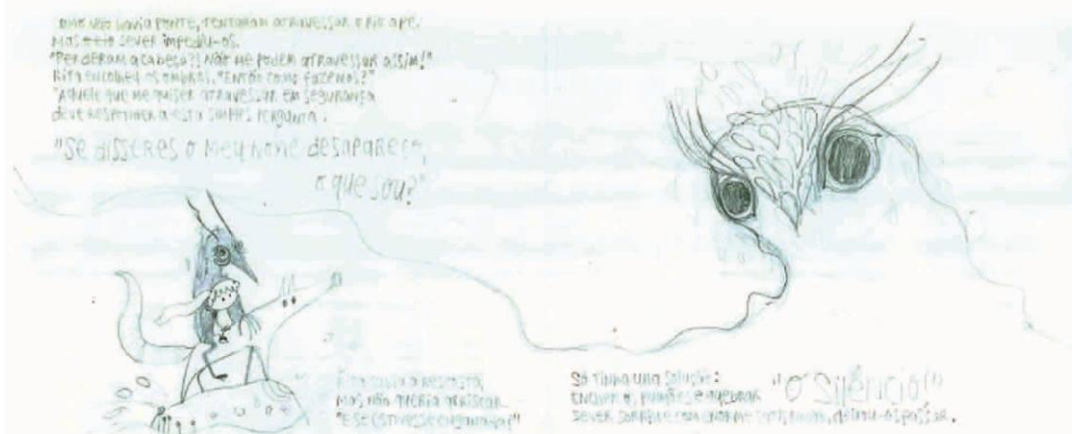 não havia ponte, tentaram atravessar o rio a pé.
Mas o rio Sever impediu-os.
"Perderam a cabeça?! Não me podem atravessar assim!"
Rita encolheu os ombros. "Então como fazemos?"
"Aquele que me quiser atravessar em segurança
deve responder a esta simples pergunta:
"Se disseres o meu nome desapareço,
o que sou?"
Rita sabia a resposta,
mas não queria arriscar.
"E se estivesse enganada?"
Só tinha uma solução:
"O silêncio!"
Sever sorriu e com enorme deixou-os passar.